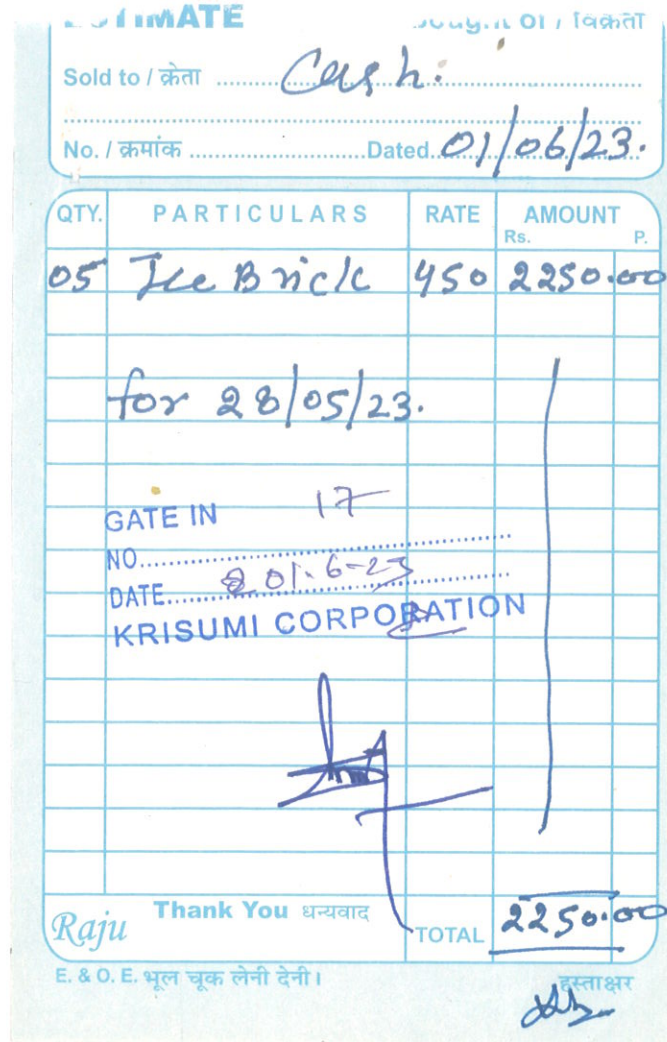 ESTIMATE Bought of / विक्रेता
Sold to / क्रेता Cash.
No. / क्रमांक Dated 01/06/23.
QTY. PARTICULARS RATE AMOUNT
Rs. P.
05 Ice Brick 450 2250.00
for 28/05/23.
GATE IN 17
NO.
DATE 01.6-23
KRISUMI CORPORATION
Raju Thank You धन्यवाद TOTAL 2250.00
E. & O. E. भूल चूक लेनी देनी। हस्ताक्षर